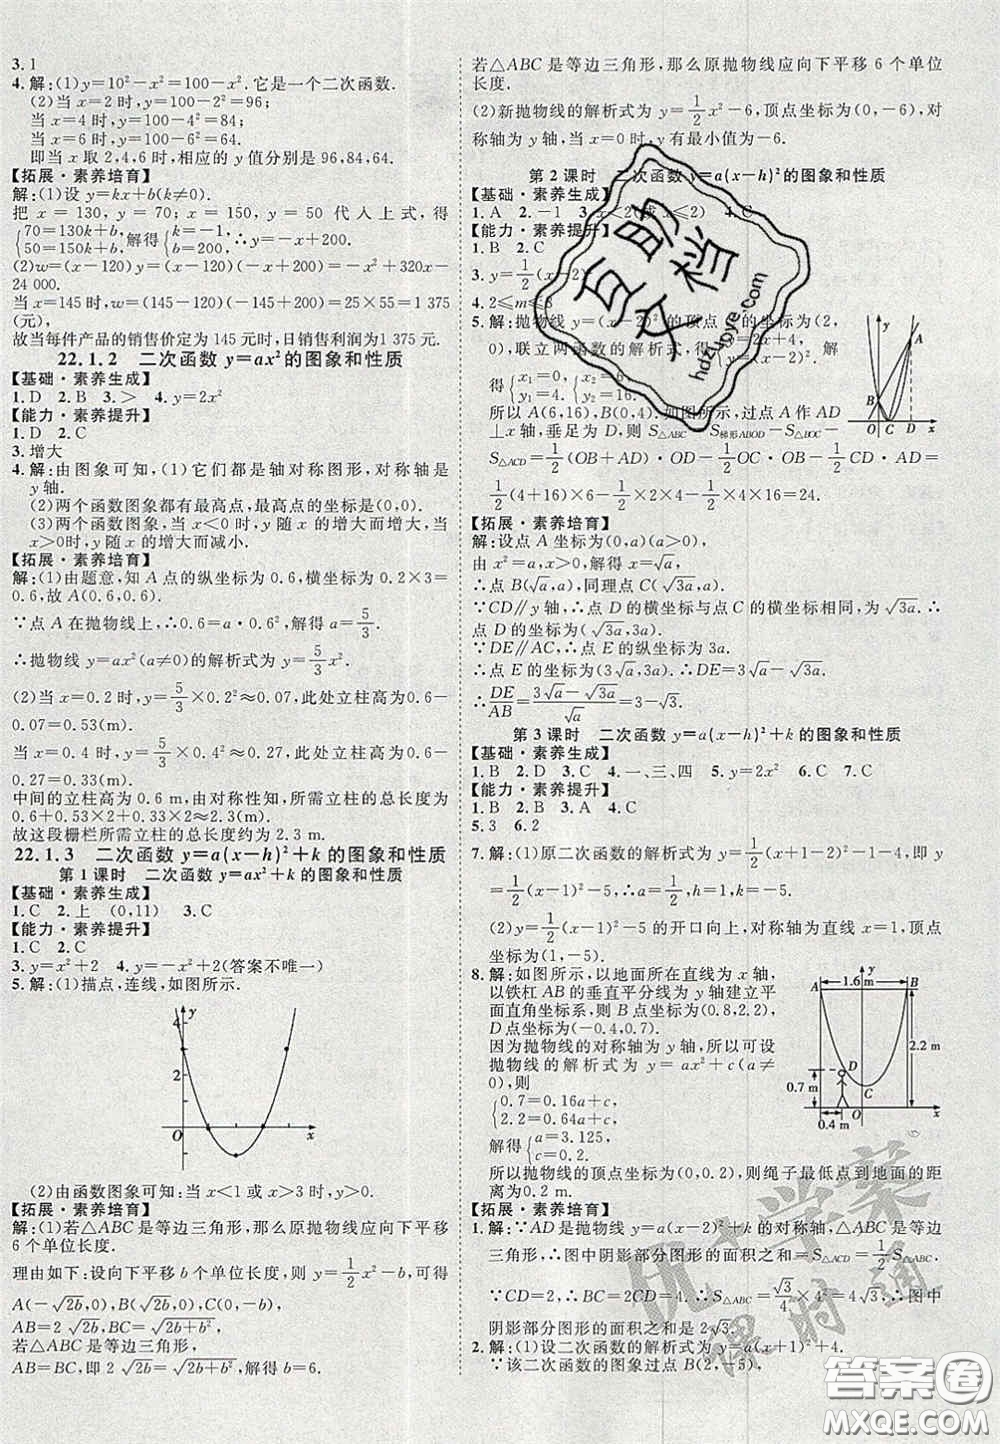 3. 1
4. 解:(1)y=10²-x²=100-x². 它是一个二次函数.
(2)当 x=2 时, y=100-2²=96;
当 x=4 时, y=100-4²=84;
当 x=6 时, y=100-6²=64.
即当 x 取 2,4,6 时,相应的 y 值分别是 96,84,64.
【拓展·素养培育】
解:(1)设 y=kx+b(k≠0).
把 x=130, y=70; x=150, y=50 代入上式,得
{70=130k+b, 50=150k+b, 解得{k=-1, b=200.
(2)w=(x-120)(-x+200)=-x²+320x-
24 000.
当 x=145 时,w=(145-120)(-145+200)=25×55=1 375
(元),
故当每件产品的销售价定为 145 元时,日销售利润为1 375 元.
22.1.2 二次函数 y=ax²的图象和性质
【基础·素养生成】
1. D 2. B 3. > 4. y=2x²
【能力·素养提升】
1. D 2. C
3. 增大
4. 解:由图象可知,(1)它们都是轴对称图形,对称轴是
y 轴.
(2)两个函数图象都有最高点,最高点的坐标为(0,0).
(3)两个函数图象,当 x<0 时, y 随 x 的增大而增大,当
x>0时, y 随 x 的增大而减小.
【拓展·素养培育】
解:(1)由题意,知 A 点的纵坐标为 0.6,横坐标为 0.2×3=
0.6,故 A(0.6,0.6).
∵点 A 在抛物线上,∴0.6=a·0.6²,∴a=5/3.
∴抛物线 y=ax²(a≠0)的解析式为 y=5/3x².
(2)当 x=0.2 时, y=5/3×0.2²≈0.07,此处立柱高为 0.6-
0.07=0.53(m).
当 x=0.4 时, y=5/3×0.4²≈0.27,此处立柱高为 0.6-
0.27=0.33(m).
中间的立柱高为 0.6 m,由对称性知,所需立柱的总长度为
0.6+0.53×2+0.33×2≈2.3(m).
故这段栅栏所需立柱的总长度约为 2.3 m.
22.1.3 二次函数 y=a(x-h)²+k 的图象和性质
第 1 课时 二次函数 y=ax²+k 的图象和性质
【基础·素养生成】
1. C 2. 上 (0,11) 3. C
【能力·素养提升】
1. C 2. C
3. y=x²+2 4. y=-x²+2(答案不唯一)
5. 解:(1)描点,连线,如图所示.
y
4
2
O x
(2)由函数图象可知:当 x<1 或 x>3 时, y>0.
【拓展·素养培育】
解:(1)若△ABC 是等边三角形,那么原抛物线应向下平移
6 个单位长度.
理由如下:设向下平移 b 个单位长度,则 y=1/2x²-b,可得
A(-√2b,0),B(√2b,0),C(0,-b),
AB=2√2b,BC=√2b+b²,
若△ABC 是等边三角形,
AB=BC,即 2√2b=√2b+b²,解得 b=6.
若△ABC 是等边三角形,那么原抛物线应向下平移 6 个单位
长度.
(2)新抛物线的解析式为 y=1/2x²-6,顶点坐标为(0,-6),对
称轴为 y 轴,当 x=0时, y 有最小值为-6.
第 2 课时 二次函数 y=a(x-h)²的图象和性质
【基础·素养生成】
1. A 2. -1 3. x<2(或 x≤2) 4. C
【能力·素养提升】
1. B 2. C
3. y=1/2(x-2)
4. 2≤m≤8
5. 解:抛物线 y=(x-2)²的顶点 C 的坐标为(2,
0),联立两函数的解析式,得 y=2x+4, 解
得{x₁=0, y₁=4. {x₂=6, y₂=16.
所以 A(6,16),B(0,4). 如图所示,过点 A 作 AD
⊥x 轴,垂足为 D,则 S△ABC=S梯形ABOD-S△BOC-
S△ACD=1/2(OB+AD)·OD-1/2OC·OB-1/2CD·AD=
1/2(4+16)×6-1/2×2×4-1/2×4×16=24.
y A B O C D x
【拓展·素养培育】
解:设点 A 坐标为(0,a)(a>0).
由 x²=a,x>0,解得 x=√a.
∴点 B(√a,a),同理点 C(√3a,a).
∵CD∥y 轴,∴点 D 的横坐标与点 C 的横坐标相同,为√3a. ∴
点 D 的坐标为(√3a,3a).
∵DE∥AC,∴点 E 的纵坐标为 3a.
∴点 E 的坐标为(3√a,3a). ∴DE=3√a-√3a.
∴DE/AB=(3√a-√3a)/√a=3-√3.
第 3 课时 二次函数 y=a(x-h)²+k 的图象和性质
【基础·素养生成】
1. B 2. D 3. C 4. 一、三、四 5. y=2x² 6. C 7. C
【能力·素养提升】
1. B 2. B 3. A 4. C
5. 3 6. 2
7. 解:(1)原二次函数的解析式为 y=1/2(x+1-2)²-1-4,即 y
=1/2(x-1)²-5,∴a=1/2,h=1,k=-5.
(2)y=1/2(x-1)²-5 的开口向上,对称轴为直线 x=1,顶点
坐标为(1,-5).
8. 解:如图所示,以地面所在直线为 x 轴,
以铁杠 AB 的垂直平分线为 y 轴建立平
面直角坐标系,则 B 点坐标为(0.8,2.2),
D 点坐标为(-0.4,0.7).
因为抛物线的对称轴为 y 轴,所以可设
抛物线的解析式为 y=ax²+c(a≠
0),则
{0.7=0.16a+c, 2.2=0.64a+c,
解得{a=3.125, c=0.2.
所以抛物线的顶点坐标为(0,0.2),则绳子最低点到地面的距
离为0.2 m.
A 1.6 m B y 2.2 m D C 0.7 m 0.4 m O x
【拓展·素养培育】
1. 解:∵AD 是抛物线 y=ax²+bx+c 的对称轴,△ABC 是等边
三角形,∴图中阴影部分图形的面积之和=S△ACD=1/2S△ABC.
∵CD=2,∴BC=2CD=4. ∴S△ABC=√3/4×4²=4√3,∴图中
阴影部分图形的面积之和为2√3.
2. 解:(1)设二次函数的解析式为 y=a(x+1)²+4.
∵该二次函数的图象过点 B(2,-5),
互助文档
hdzuoye.com
优+学案
课时通
答案圈
MXQE.COM